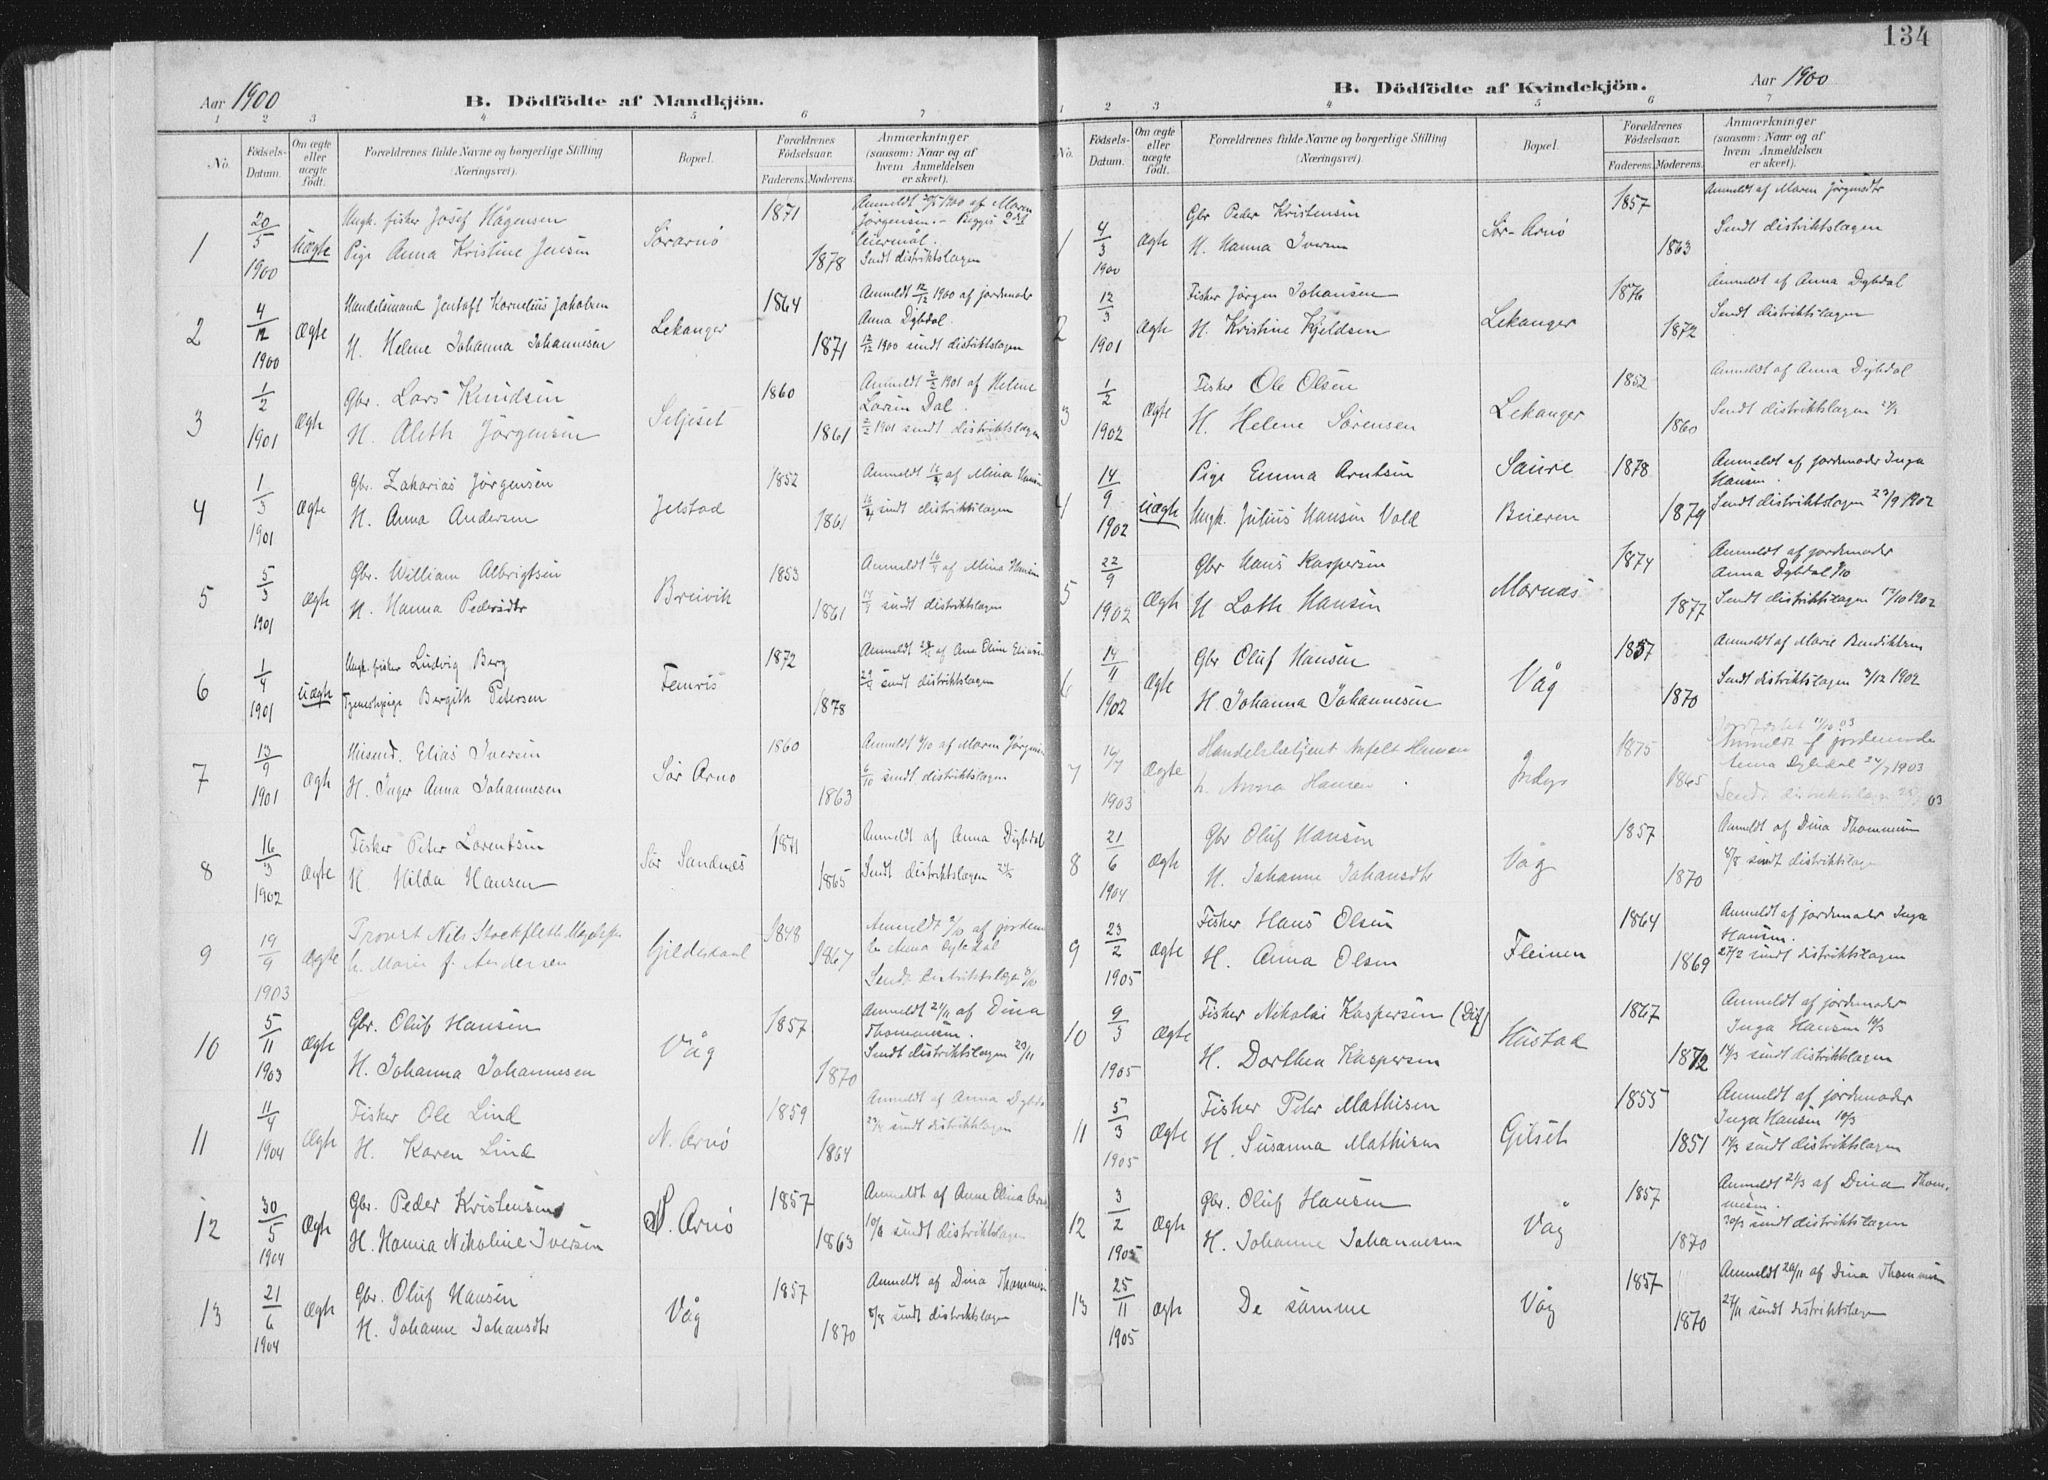 134
Aar 1900
B. Dödfödte af Mandkjön.
1 2 3 4 5 6 7
No.
Födsels-Datum.
Om ægte eller uægte födt.
Forældrenes fulde Navne og borgerlige Stilling (Næringsvei).
Bopæl.
Forældrenes Födselsaar.
Faderens. Moderens.
Anmærkninger (saasom: Naar og af hvem Anmeldelsen er skeet).
1 20/5 1900 uægte Ungk. fisker Josef Hågensen
Pige Anna Kristine Jensen
Sørarnö 1871 1878
Anmeldt 20/5 1900 af Maren Jörgensen. - Begges 2det leiermål.
Sendt distriktslægen
2 4/12 1900 ægte Handelsmand Jentoft Kornelius Jakobsen
H. Helene Johanna Johannesen
Lekanger 1864 1871
Anmeldt 12/12 1900 af jordemoder Anna Dybdal
12/12 1900 sendt distriktslægen
3 1/2 1901 ægte Gbr. Lars Knudsen
H. Aleth Jörgensen
Seljeset 1860 1861
Anmeldt 2/2 1901 af Helene Dal.
2/2 1901 sendt distriktslægen
4 1/3 1901 ægte Gbr. Zakarias Jörgensen
H. Anna Andersen
Jelstad 1852 1861
Anmeldt af Mina Hansen
sendt distriktslægen
5 5/3 1901 ægte Gbr. William Albrigtsen
H. Hanna Pedersdtr
Breivik 1853 1861
Anmeldt af Mina Hansen
sendt distriktslægen
6 1/4 1901 uægte Ungk. fisker Ludvig Berg
Tjenestepige Bergith Petersen
Femris 1872 1878
Anmeldt af Ane Oline
sendt distriktslægen
7 13/9 1901 ægte Husmd. Elias Iversen
H. Inger Anna Johannesen
Sör Arnö 1860 1863
Anmeldt 6/10 af Maren Jörgensen
6/10 sendt distriktslægen
8 16/3 1902 ægte Fisker Peter Lorentsen
H. Hilda Hansen
Sör Sandnes 1871 1865
Anmeldt af Anna Dybdal
Sendt distriktslægen
9 19/9 1903 ægte Provst Nils Stockfleth
h. Marie f. Andersen
Gildeskaal 1848 1867
Anmeldt af Anna Dybdal
10 5/11 1903 ægte Gbr. Oluf Hansen
H. Johanna Johannesen
Våg 1857 1870
Anmeldt 21/11 af Dina Thommesen.
Sendt distriktslægen 23/11
11 11/4 1904 ægte Fisker Ole Lind
H. Karen Lind
N. Arnö 1859 1864
Anmeldt af Anna Dybdal
sendt distriktslægen
12 30/5 1904 ægte Gbr. Peder Kristensen
H. Hanna Nikoline Iversen
S. Arnö 1857 1863
Anmeldt af Anne Elina
sendt distriktslægen
13 21/6 1904 ægte Gbr. Oluf Hansen
H. Johanne Johansdtr
Våg 1857 1870
Anmeldt af Dina Thommesen
8/8 sendt distriktslægen
B. Dödfödte af Kvindekjön.
Aar 1900
1 2 3 4 5 6 7
No.
Födsels-Datum.
Om ægte eller uægte födt.
Forældrenes fulde Navne og borgerlige Stilling (Næringsvei).
Bopæl.
Forældrenes Födselsaar.
Faderens. Moderens.
Anmærkninger (saasom: Naar og af hvem Anmeldelsen er skeet).
1 4/3 1900 ægte Gbr Peder Kristensen
H. Hanna Iversen
Sör-Arnö 1857 1863
Anmeldt af Maren Jörgensdtr
Sendt distriktslægen
2 12/3 1901 ægte Fisker Jörgen Johansen
H. Kristine Kjeldsen
Lekanger 1876 1872
Anmeldt af Anna Dybdal
Sendt distriktslægen
3 1/2 1902 ægte Fisker Ole Olsen
H. Helene Sörensen
Lekanger 1852 1860
Anmeldt af Anna Dybdal
Sendt distriktslægen
4 14/9 1902 uægte Pige Emma Arntsen
Ungk. Julius Hansen Vold
Saure
Beieren 1878 1879
Anmeldt af jordemoder Inga Hansen.
Sendt distriktslægen 23/9 1902
5 22/9 1902 ægte Gbr Hans Kaspersen
H Loth Hansen
Mornes 1874 1877
Anmeldt af jordemoder Anna Dybdal
Sendt distriktslægen 1902
6 14/11 1902 ægte Gbr Oluf Hansen
H. Johanna Johannesen
Våg 1857 1870
Anmeldt af Marie Bendiktsen
Sendt distriktslægen 1902
7 16/7 1903 ægte Handelsbetjent Hansen
h. Anna Hansen
Indyr 1875 1865
Anmeldt af jordemoder Anna Dybdal 24/7 1903
8 21/6 1904 ægte Gbr Oluf Hansen
H. Johanne Johansdtr
Våg 1857 1870
Anmeldt af Dina Thommesen
8/8 sendt distriktslægen
9 23/2 1905 ægte Fisker Hans Olsen
H. Anna Olsen
Fleinen 1864 1869
Anmeldt af jordemoder Inga Hansen.
27/2 sendt distriktslægen
10 9/3 1905 ægte Fisker Nikolai Kaspersen
H. Dorthea Kaspersen
Hustad 1867 1872
Anmeldt af jordemoder Inga Hansen
sendt distriktslægen
11 5/3 1905 ægte Fisker Peter Mathisen
H. Susanna Mathisen
Gilset 1855 1851
Anmeldt af jordemoder Inga Hansen 10/3
sendt distriktslægen
12 3/2 1905 ægte Gbr. Oluf Hansen
H. Johanne Johannesen
Våg 1857 1870
Anmeldt 21/3 af Dina Thommesen.
30/3 sendt distriktslægen
13 25/11 1905 ægte De samme
Våg 1857 1870
Anmeldt 26/11 af Dina Thommesen
27/11 sendt distriktslægen